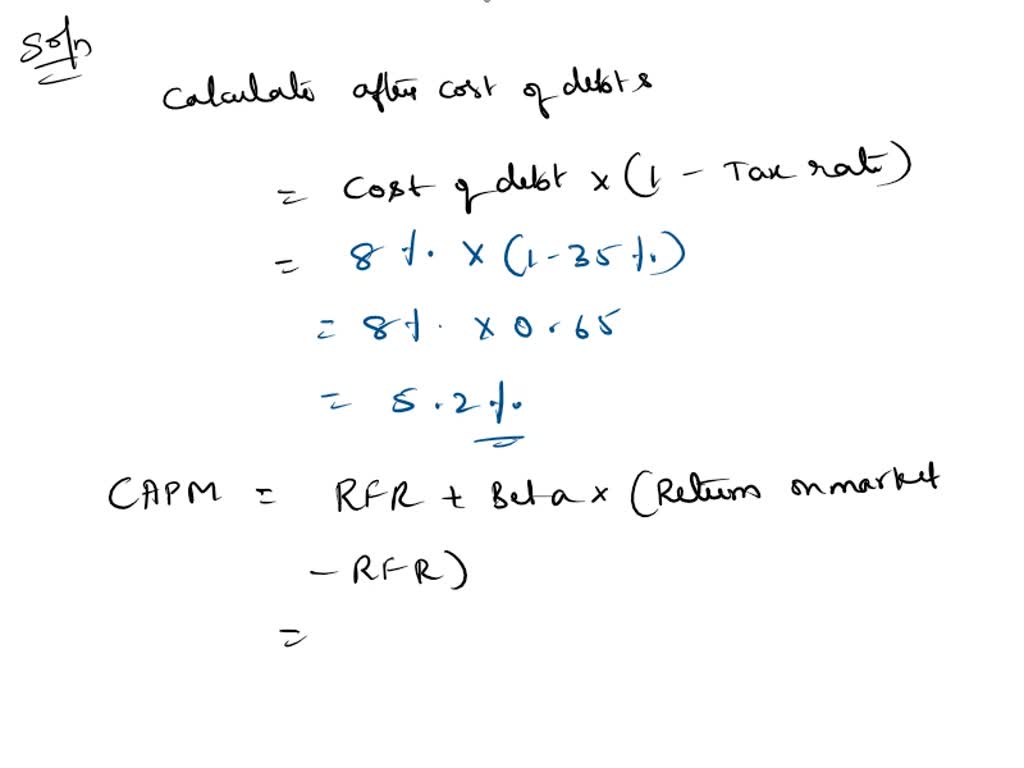 Soln
Calculate after cost of debts
= Cost of debt × (1 - Tax rate)
= 8 %. × (1-35 %.)
= 8%. × 0.65
= 5.2%.
CAPM = RFR + Beta × (Return on market
- RFR)
=